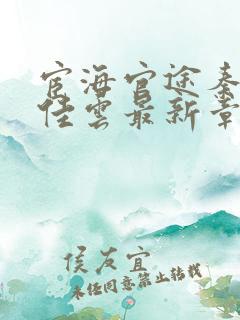 宦海官途秦
佳雲最新章
侯友宜
未经同意禁止转载